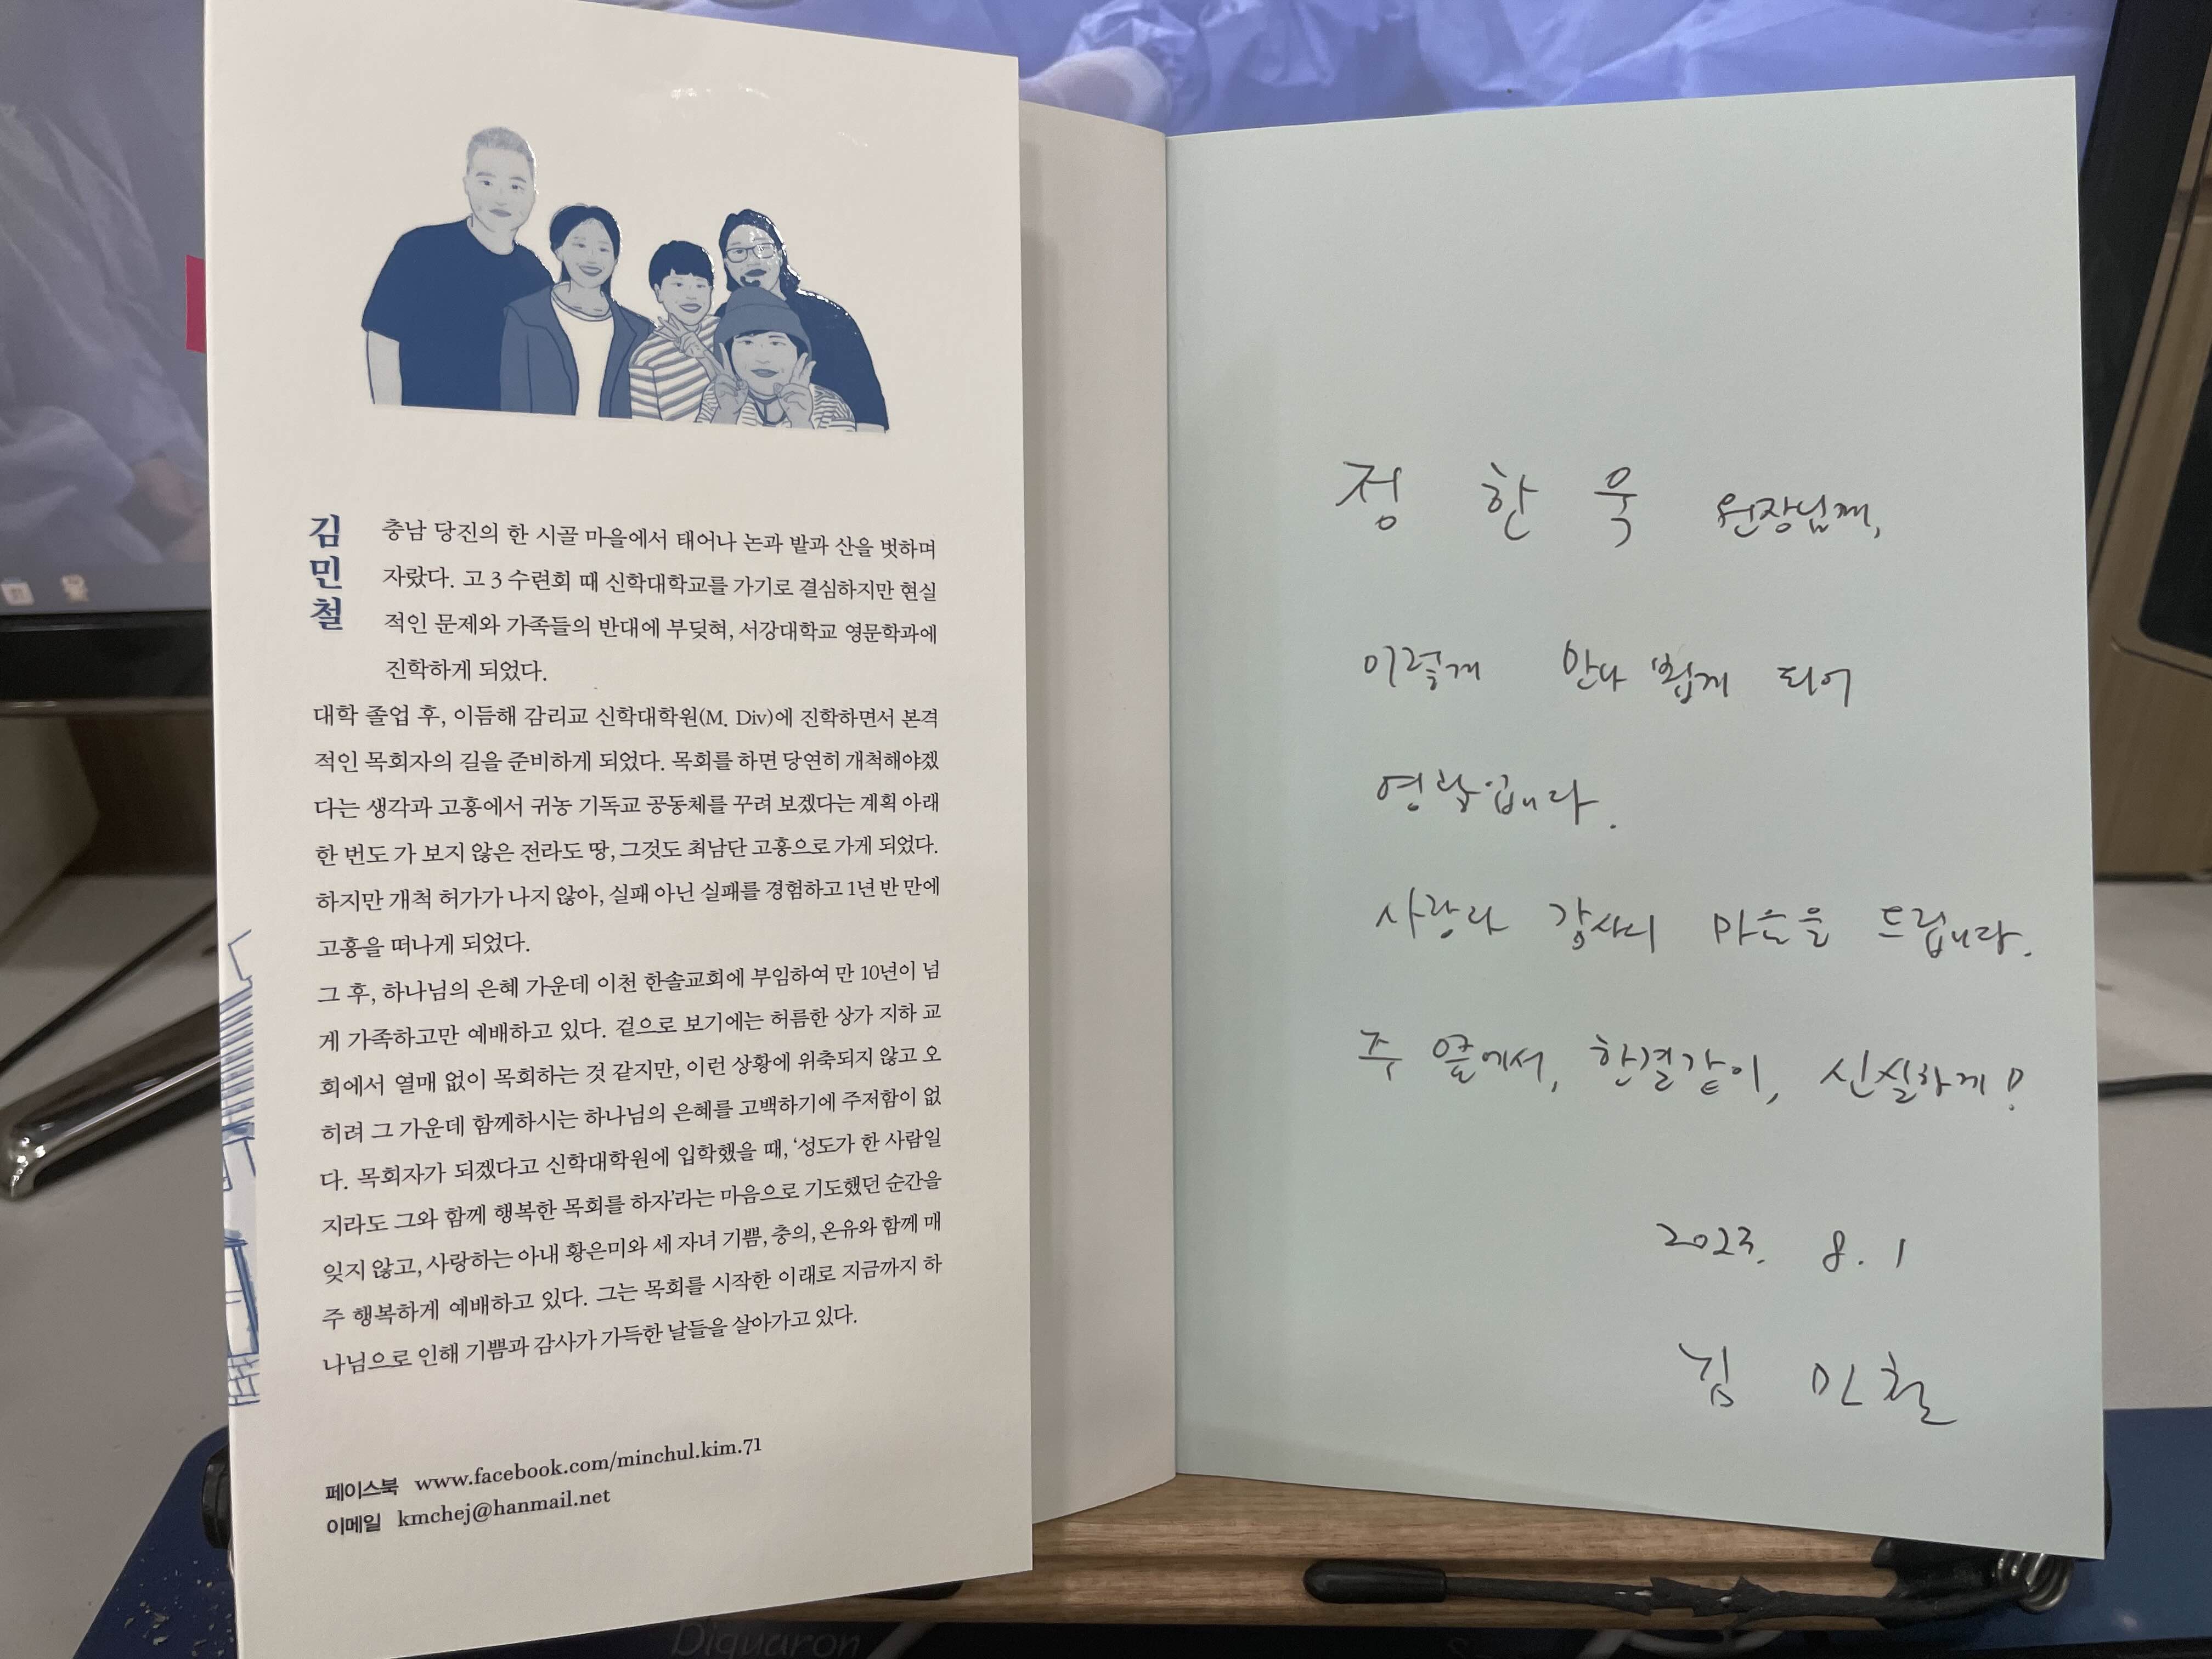 김민철
충남 당진의 한 시골 마을에서 태어나 논과 밭과 산을 벗하며
자랐다. 고 3 수련회 때 신학대학교를 가기로 결심하지만 현실
적인 문제와 가족들의 반대에 부딪혀, 서강대학교 영문학과에
진학하게 되었다.
대학 졸업 후, 이듬해 감리교 신학대학원(M. Div)에 진학하면서 본격
적인 목회자의 길을 준비하게 되었다. 목회를 하면 당연히 개척해야겠
다는 생각과 고흥에서 귀농 기독교 공동체를 꾸려 보겠다는 계획 아래
한 번도 가 보지 않은 전라도 땅, 그것도 최남단 고흥으로 가게 되었다.
하지만 개척 허가가 나지 않아, 실패 아닌 실패를 경험하고 1년 반 만에
고흥을 떠나게 되었다.
그 후, 하나님의 은혜 가운데 이천 한솔교회에 부임하여 만 10년이 넘
게 가족하고만 예배하고 있다. 겉으로 보기에는 허름한 상가 지하 교
회에서 열매 없이 목회하는 것 같지만, 이런 상황에 위축되지 않고 오
히려 그 가운데 함께하시는 하나님의 은혜를 고백하기에 주저함이 없
다. 목회자가 되겠다고 신학대학원에 입학했을 때, '성도가 한 사람일
지라도 그와 함께 행복한 목회를 하자'라는 마음으로 기도했던 순간을
잊지 않고, 사랑하는 아내 황은미와 세 자녀 기쁨, 충의, 온유와 함께 매
주 행복하게 예배하고 있다. 그는 목회를 시작한 이래로 지금까지 하
나님으로 인해 기쁨과 감사가 가득한 날들을 살아가고 있다.
페이스북 www.facebook.com/minchul.kim.71
이메일 kmchej@hanmail.net
정 한 욱 원장님께,
이렇게 만나 뵙게 되어
영광입니다.
사랑과 감사의 마음을 드립니다.
주 앞에서, 한결같이, 신실하게!
2023. 8. 1
김 민 철
Diquaron